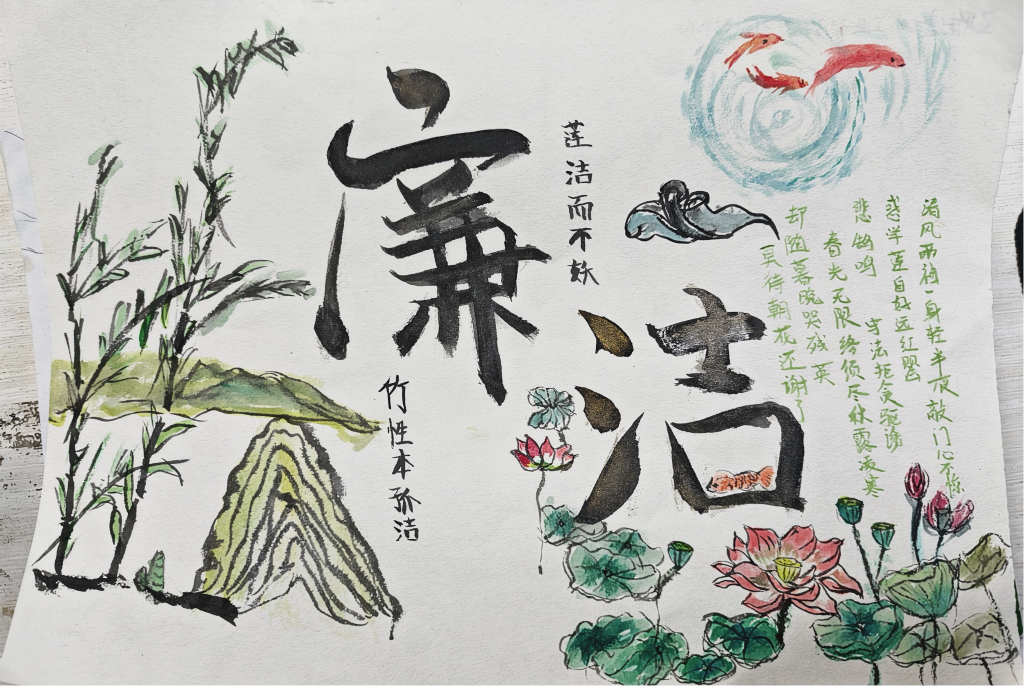 廉洁
莲洁而不妖
竹性本孤洁
清风两袖一身轻半夜敲门心不惊
学莲自好远红罂
悲鸽鸣 守法拒贪驱
春光无限终须尽秋露凌寒
却随暮晚哭残英
莫待朝花还谢了